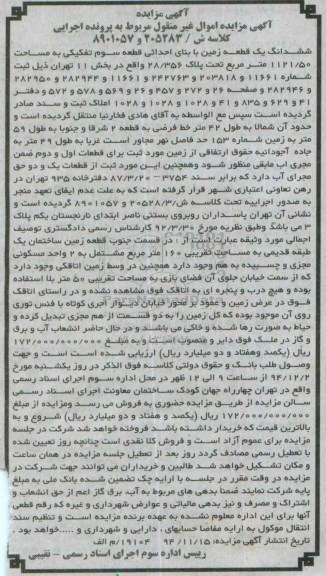 آگهی مزایده
آگهی مزایده اموال غیر منقول مربوط به پرونده اجرایی
کلاسه ش / ۲۰۵۲۸۳ و ۸۹۰۱۰۵۷
ششدانگ یک قطعه زمین با بنای احداثی قطعه سوم تفکیکی به مساحت
۱۱۲۱/۵۰ متر مربع تحت پلاک ۲۸/۳۵۶ واقع در بخش ۱۱ تهران ذیل ثبت
شماره ۱۱۶۶۱ و ۲۰۳۸۱۸ و ۲۴۷۶۳ و ۱۱۶۶۱ و ۲۸۲۹۴۴ و ۲۸۲۹۵۰
و ۲۸۲۹۴۶ و صفحه ۲۶ و ۲۷۲ و ۴۵۷ و ۲۶ و ۵۶۹ و ۵۷۸ و ۵۷۲ و دفتر
۴۱ و ۶۲۹ و ۸۳۵ و ۴۱ و ۱۰۲۸ و ۱۰۲۸ و ۱۰۲۸ املاک ثبت و سند صادر
گردیده است سپس مع الواسطه به آقای هادی فخارنیا منتقل گردیده است و
حدود آن شمالا به طول ۴۲ متر خط فرضی به قطعه ۲ شرقا و جنوبا به طول ۵۹
متر به زمین شماره ۱۵۳ حد فاصل نهر مجاور است غربا به طول ۴۹ متر به
جاده آجودانیه حقوق ارتفاقی از زمین مورد ثبت برای قطعات اول و دوم ضمن
مجرای اب مابقی منظور شود وهمچنین این مورد ثبت از قطعات یک و دو حق
مجرای آب دارد که برابر سند ۳۷۵۴ – ۸۷/۳/۲۰ دفترخانه ۹۳۵ تهران در
رهن تعاونی اعتباری شهر قرار گرفته است که به علت عدم ایفای تعهد منجر
به صدور اجراییه تحت کلاسه ش/۲۰۵۲۸۳ و ۸۹۰۱۰۵۷ گردیده است و
نشانی آن تهران پاسداران روبروی بستنی ناصر ابتدای نارنجستان یکم پلاک
۳ می باشد وطبق نظریه مورخ ۹۲/۳/۳۰ کارشناس رسمی دادگستری توصیف
اجمالی مورد وثیقه عبارت است از : در قسمت جنوب قطعه زمین ساختمان یک
طبقه قدیمی به مساحت تقریبی ۱۶۰ متر مربع مشتمل به ۲ واحد مسکونی
مجزی و چسبیده به هم وجود دارد همچنین در وسط زمین اتاقکی وجود دارد
که از سمت خیابان جلوی آن فضای بازی به مساحت تقریبی ۵۰ متر بلا استفاده
بوده و هیچ درب و پنجره ای به اتاقک فوق مشاهده نشده و در راستای اتاقک
فوق در عرض زمین و عمود بر محور خیابان دیوار آجری کوتاه با فنس توری
روی آن موجود بوده که کل زمین را به دو قسمت از هم مجزی تبدیل کرده و
حیاط به صورت رها شده و خاکی می باشد و در حال حاضر انشعاب آب و برق
و گاز در ملک فوق دایر و منصوب است و به مبلغ ۱۷۲/۰۰۰/۰۰۰/۰۰۰
ریال (یکصد وهفتاد و دو میلیارد ریال) ارزیابی شده است است و جهت
وصول طلب بانک و حقوق دولتی کلاسه فوق الذکر در روز یکشنبه مورخ
۹۴/۱۲/۲ از ساعت ۹ الی ۱۲ ظهر در محل اداره سوم اجرای اسناد رسمی
واقع در تهران چهارراه جهان کودک ساختمان معاونت اجرای اسناد رسمی
سالن مزایده از طریق مزایده حضوری به فروش می رسد ومزایده از مبلغ
۱۷۲/۰۰۰/۰۰۰/۰۰۰ ریال (یکصد و هفتاد و دو میلیارد ریال) شروع و به
بالاترین قیمت که خریدار داشته باشد فروخته خواهد شد شرکت در جلسه
مزایده برای عموم آزاد است و فروش کلا نقدی است چنانچه روز تعیین شده
با تعطیل رسمی مصادف گردد روز بعد از تعطیل جلسه مزایده در همان ساعت
و مکان تشکیل خواهد شد طالبین و خریداران می توانند جهت شرکت در
مزایده در وقت مقرر در جلسه با ارایه چک تضمین شده بانک ملی به مبلغ
پایه شرکت نمایند ضمنا بدهی های مربوط به آب، برق گاز اعم از حق انشعاب و
اشتراک و مصرف و نیز بدهی مالیاتی و عوارض شهرداری و غیره که رقم قطعی
آنها برای این اداره معلوم نشده به عهده برنده مزایده است و تنظیم سند
انتقال موکول به ارایه مفاصا حسابهای ، دارایی و شهرداری و .....خواهد بود .
تاریخ انتشار آگهی مزایده: ۹۴/۱۱/۱۵ ۱۹۱۰۴/م الف
رییس اداره سوم اجرای اسناد رسمی - نقیبی